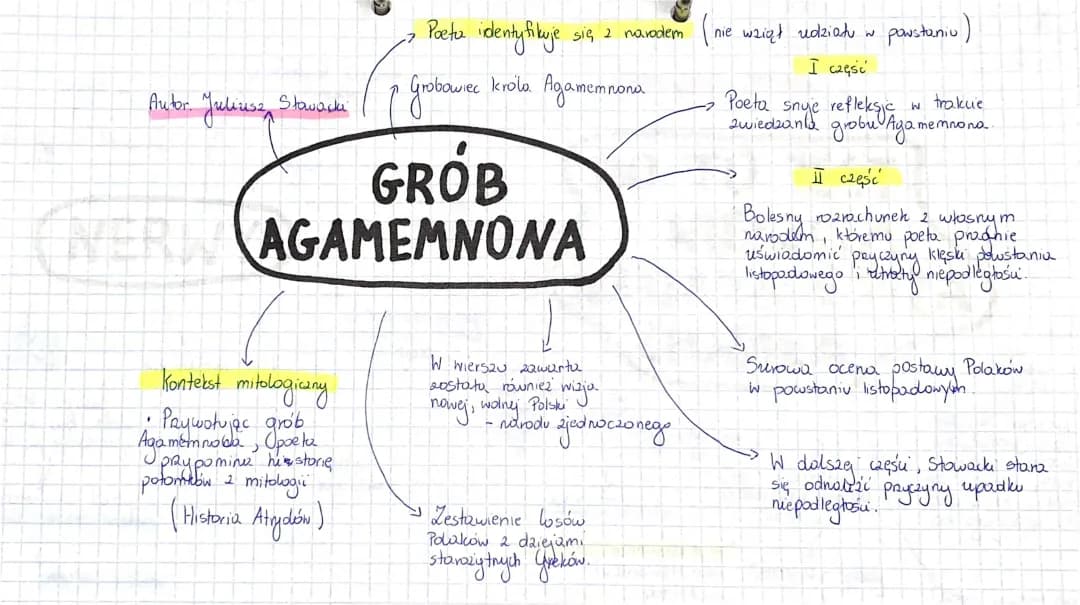 Poeta identyfikuje się z narodem (nie wziął udziału w powstaniu)
I część
Grobowiec króla Agamemnona
Autor. Juliusz Słowacki
Poeta snuje refleksje w trakcie
zwiedzania grobu Agamemnona.
GRÓB
AGAMEMNONA
II część
Bolesny rozrachunek z własnym
narodem, któremu poeta pragnie
uświadomić przyczyny klęski powstania
listopadowego i utraty niepodległości.
Kontekst mitologiczny
• Przywołując grób
Agamemnona, poeta
przypomina historię
potomków z mitologii
(Historia Atrydów)
W wierszu zawarta
została również wizja
nowej, wolnej Polski
- narodu zjednoczonego
Surowa ocena postawy Polaków
w powstaniu listopadowym.
W dalszej części, Słowacki stara
się odnaleźć przyczyny upadku
niepodległości.
Zestawienie losów
Polaków z dziejami
starożytnych Greków.